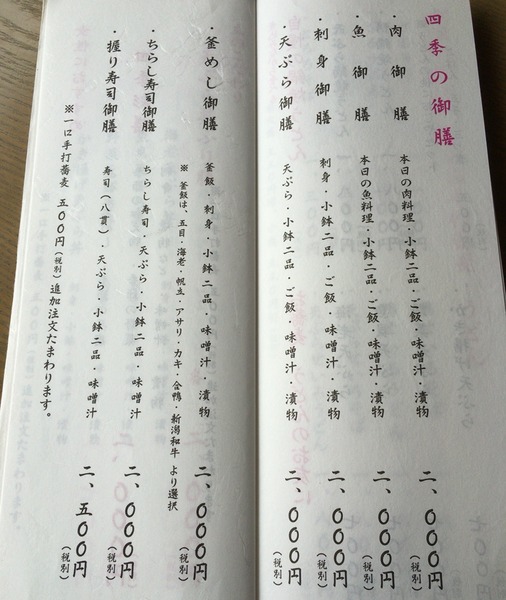 四季の御膳
・肉御膳 本日の肉料理・小鉢二品・ご飯・味噌汁・漬物 二、〇〇〇円(税別)
・魚御膳 本日の魚料理・小鉢二品・ご飯・味噌汁・漬物 二、〇〇〇円(税別)
・刺身御膳 刺身・小鉢二品・ご飯・味噌汁・漬物 二、〇〇〇円(税別)
・天ぷら御膳 天ぷら・小鉢二品・ご飯・味噌汁・漬物 二、〇〇〇円(税別)
・釜めし御膳 釜飯・刺身・小鉢二品・味噌汁・漬物 二、〇〇〇円(税別)
※ 釜飯は、五目・海老・帆立・アサリ・カキ・合鴨・新潟和牛 より選択
・ちらし寿司御膳 ちらし寿司・天ぷら・小鉢二品・味噌汁 二、〇〇〇円(税別)
・握り寿司御膳 寿司(八貫)・天ぷら・小鉢二品・味噌汁 二、五〇〇円(税別)
※一口手打蕎麦 五〇〇円(税別)追加注文たまわります。